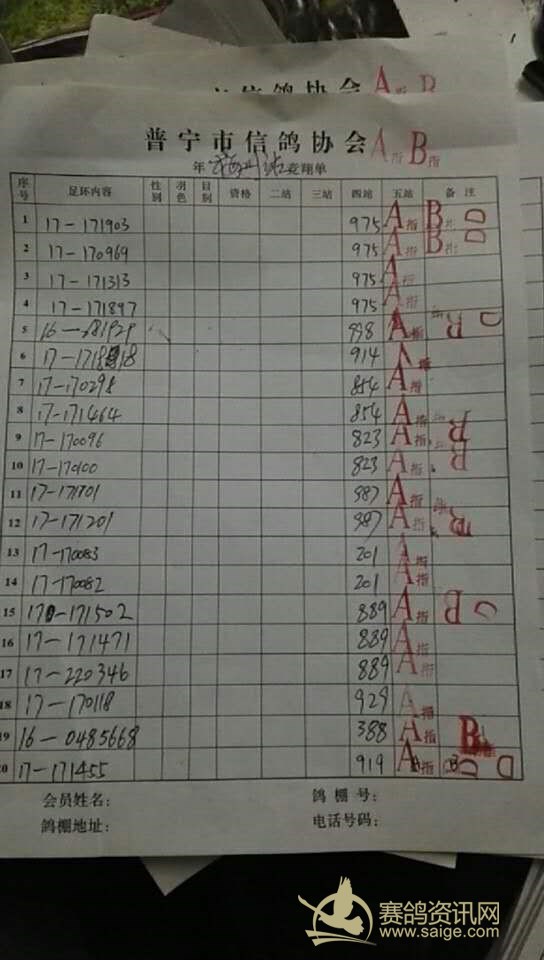 市信鸽协会 A指 B
普宁市信鸽协会 A指 B指
年 站竞翔单
序号 足环内容 性别 羽色 目别 资格 二站 三站 四站 五站 备注
1 17-171903 975 A指 B指 D
2 17-170969 975 A指 B指 D
3 17-171313 975 A指
4 17-171897 975 A指
5 998 A指 B D
6 914 A指
7 17-170298 854 A指
8 17-171464 854 A指 B
9 17-170096 823 A指
10 17-170100 823 A指 B
11 17-171701 987 A指
12 17-171201 987 A指 B
13 17-170083 201 A指
14 17-170082 201 A指
15 17-171502 889 A指 B D
16 17-171471 889 A指
17 17-220346 889 A指
18 17-170118 929 A指
19 16-0485668 388 A指 B指
20 17-171455 919 A指 B D
会员姓名： 鸽棚号：
鸽棚地址： 电话号码：
赛鸽资讯网
www.saige.com